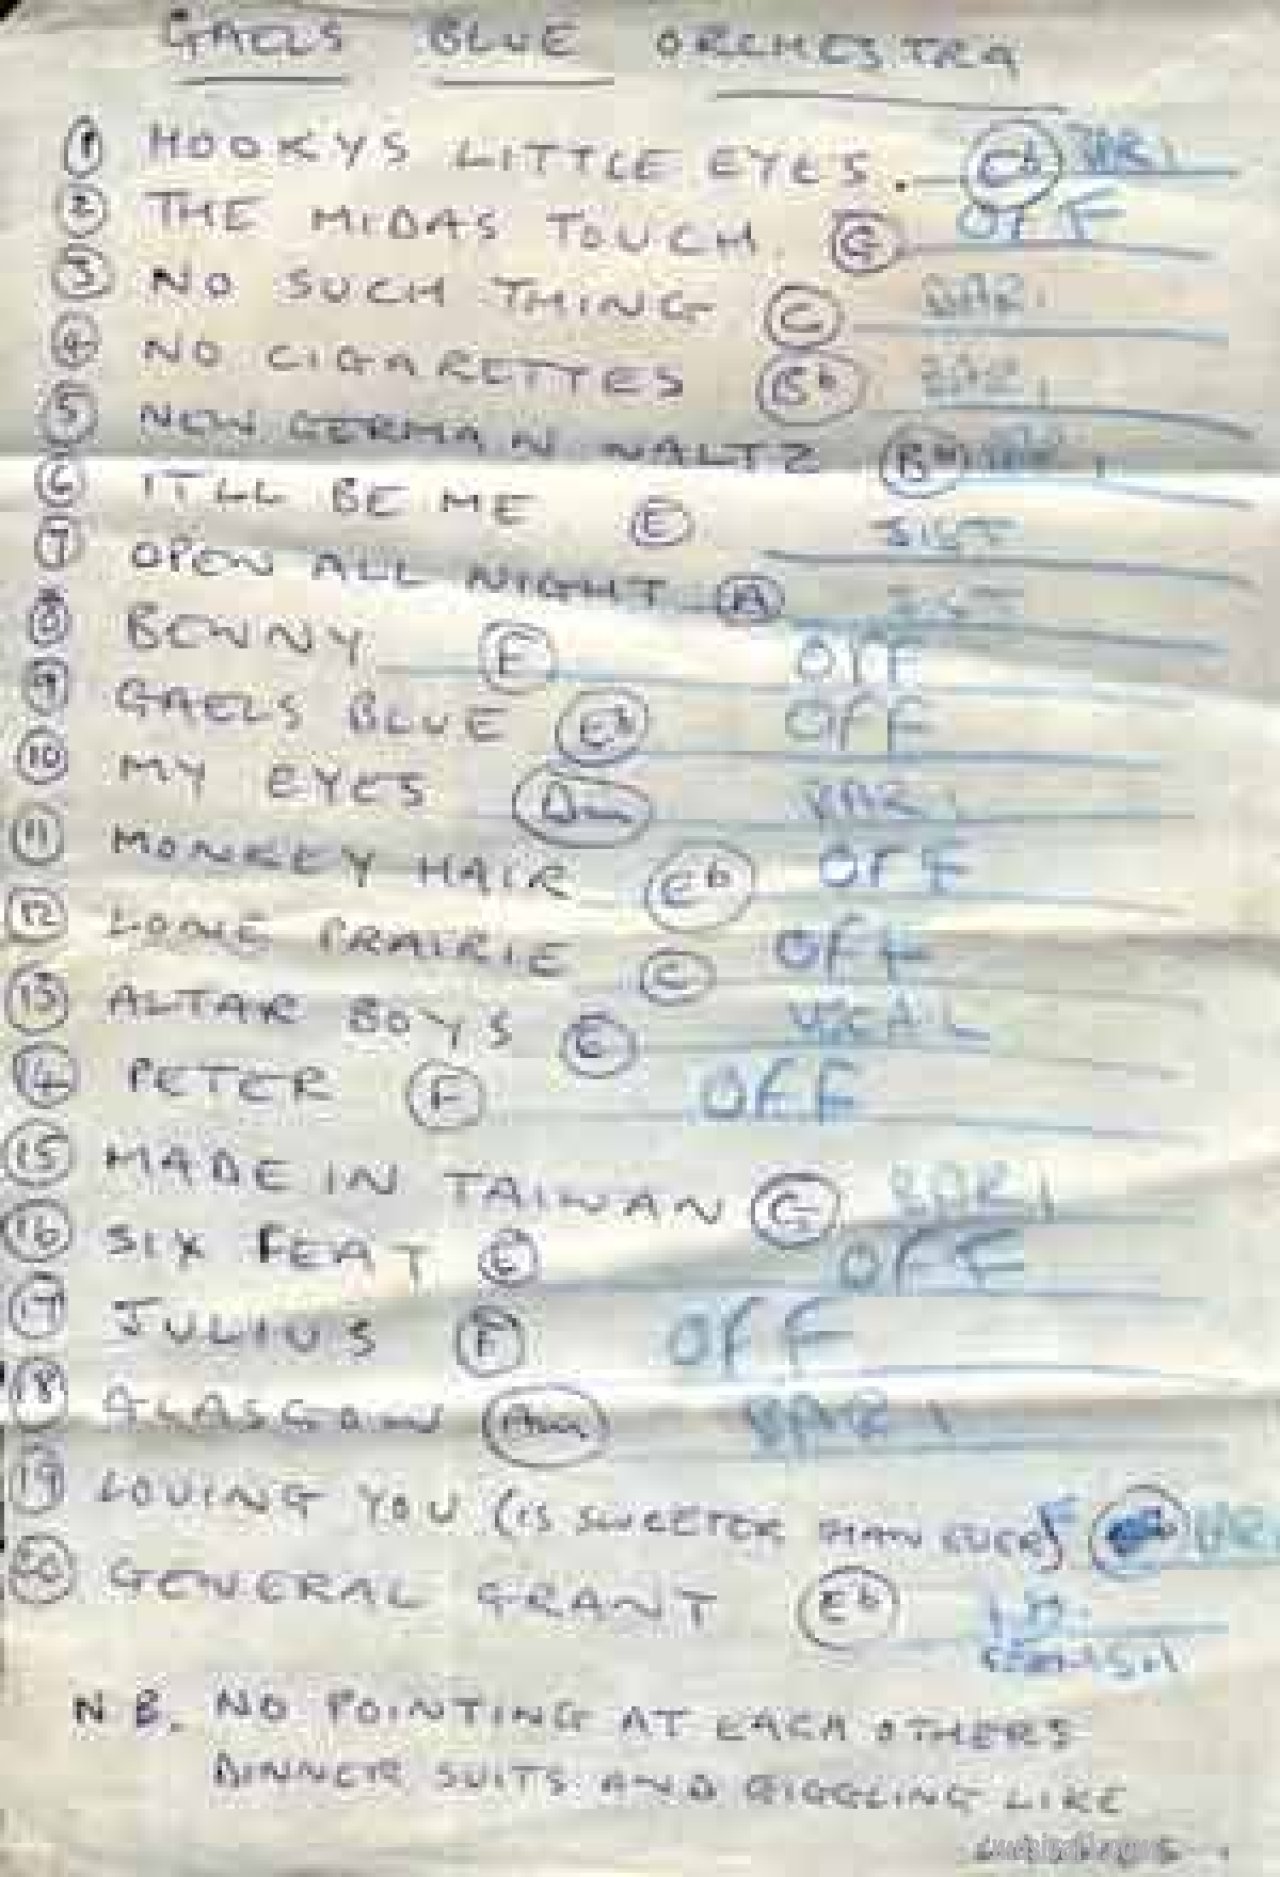 GAELS BLUE ORCHESTRA
1 HOOKYS LITTLE EYES. Eb VAR 1
2 THE MIDAS TOUCH. G OFF
3 NO SUCH THING C VAR 1
4 NO CIGARETTES Bb VAR 1
5 NEW GERMAN WALTZ VAR 1
6 ITLL BE ME E
7 OPEN ALL NIGHT A
8 BENNY F OFF
9 GAELS BLUE Eb OFF
10 MY EYES VAR 1
11 MONKEY HAIR Eb OFF
12 LONE PRAIRIE C OFF
13 ALTAR BOYS E VOCAL
14 PETER F OFF
15 MADE IN TAIWAN G VAR 1
16 SIX FEAT E OFF
17 JULIUS F OFF
18 Am VAR 1
19 LOVING YOU (IS SWEETER THAN EVER)
20 GENERAL GRANT Eb
N.B. NO POINTING AT EACH OTHERS
DINNER SUITS AND GIGGLING LIKE